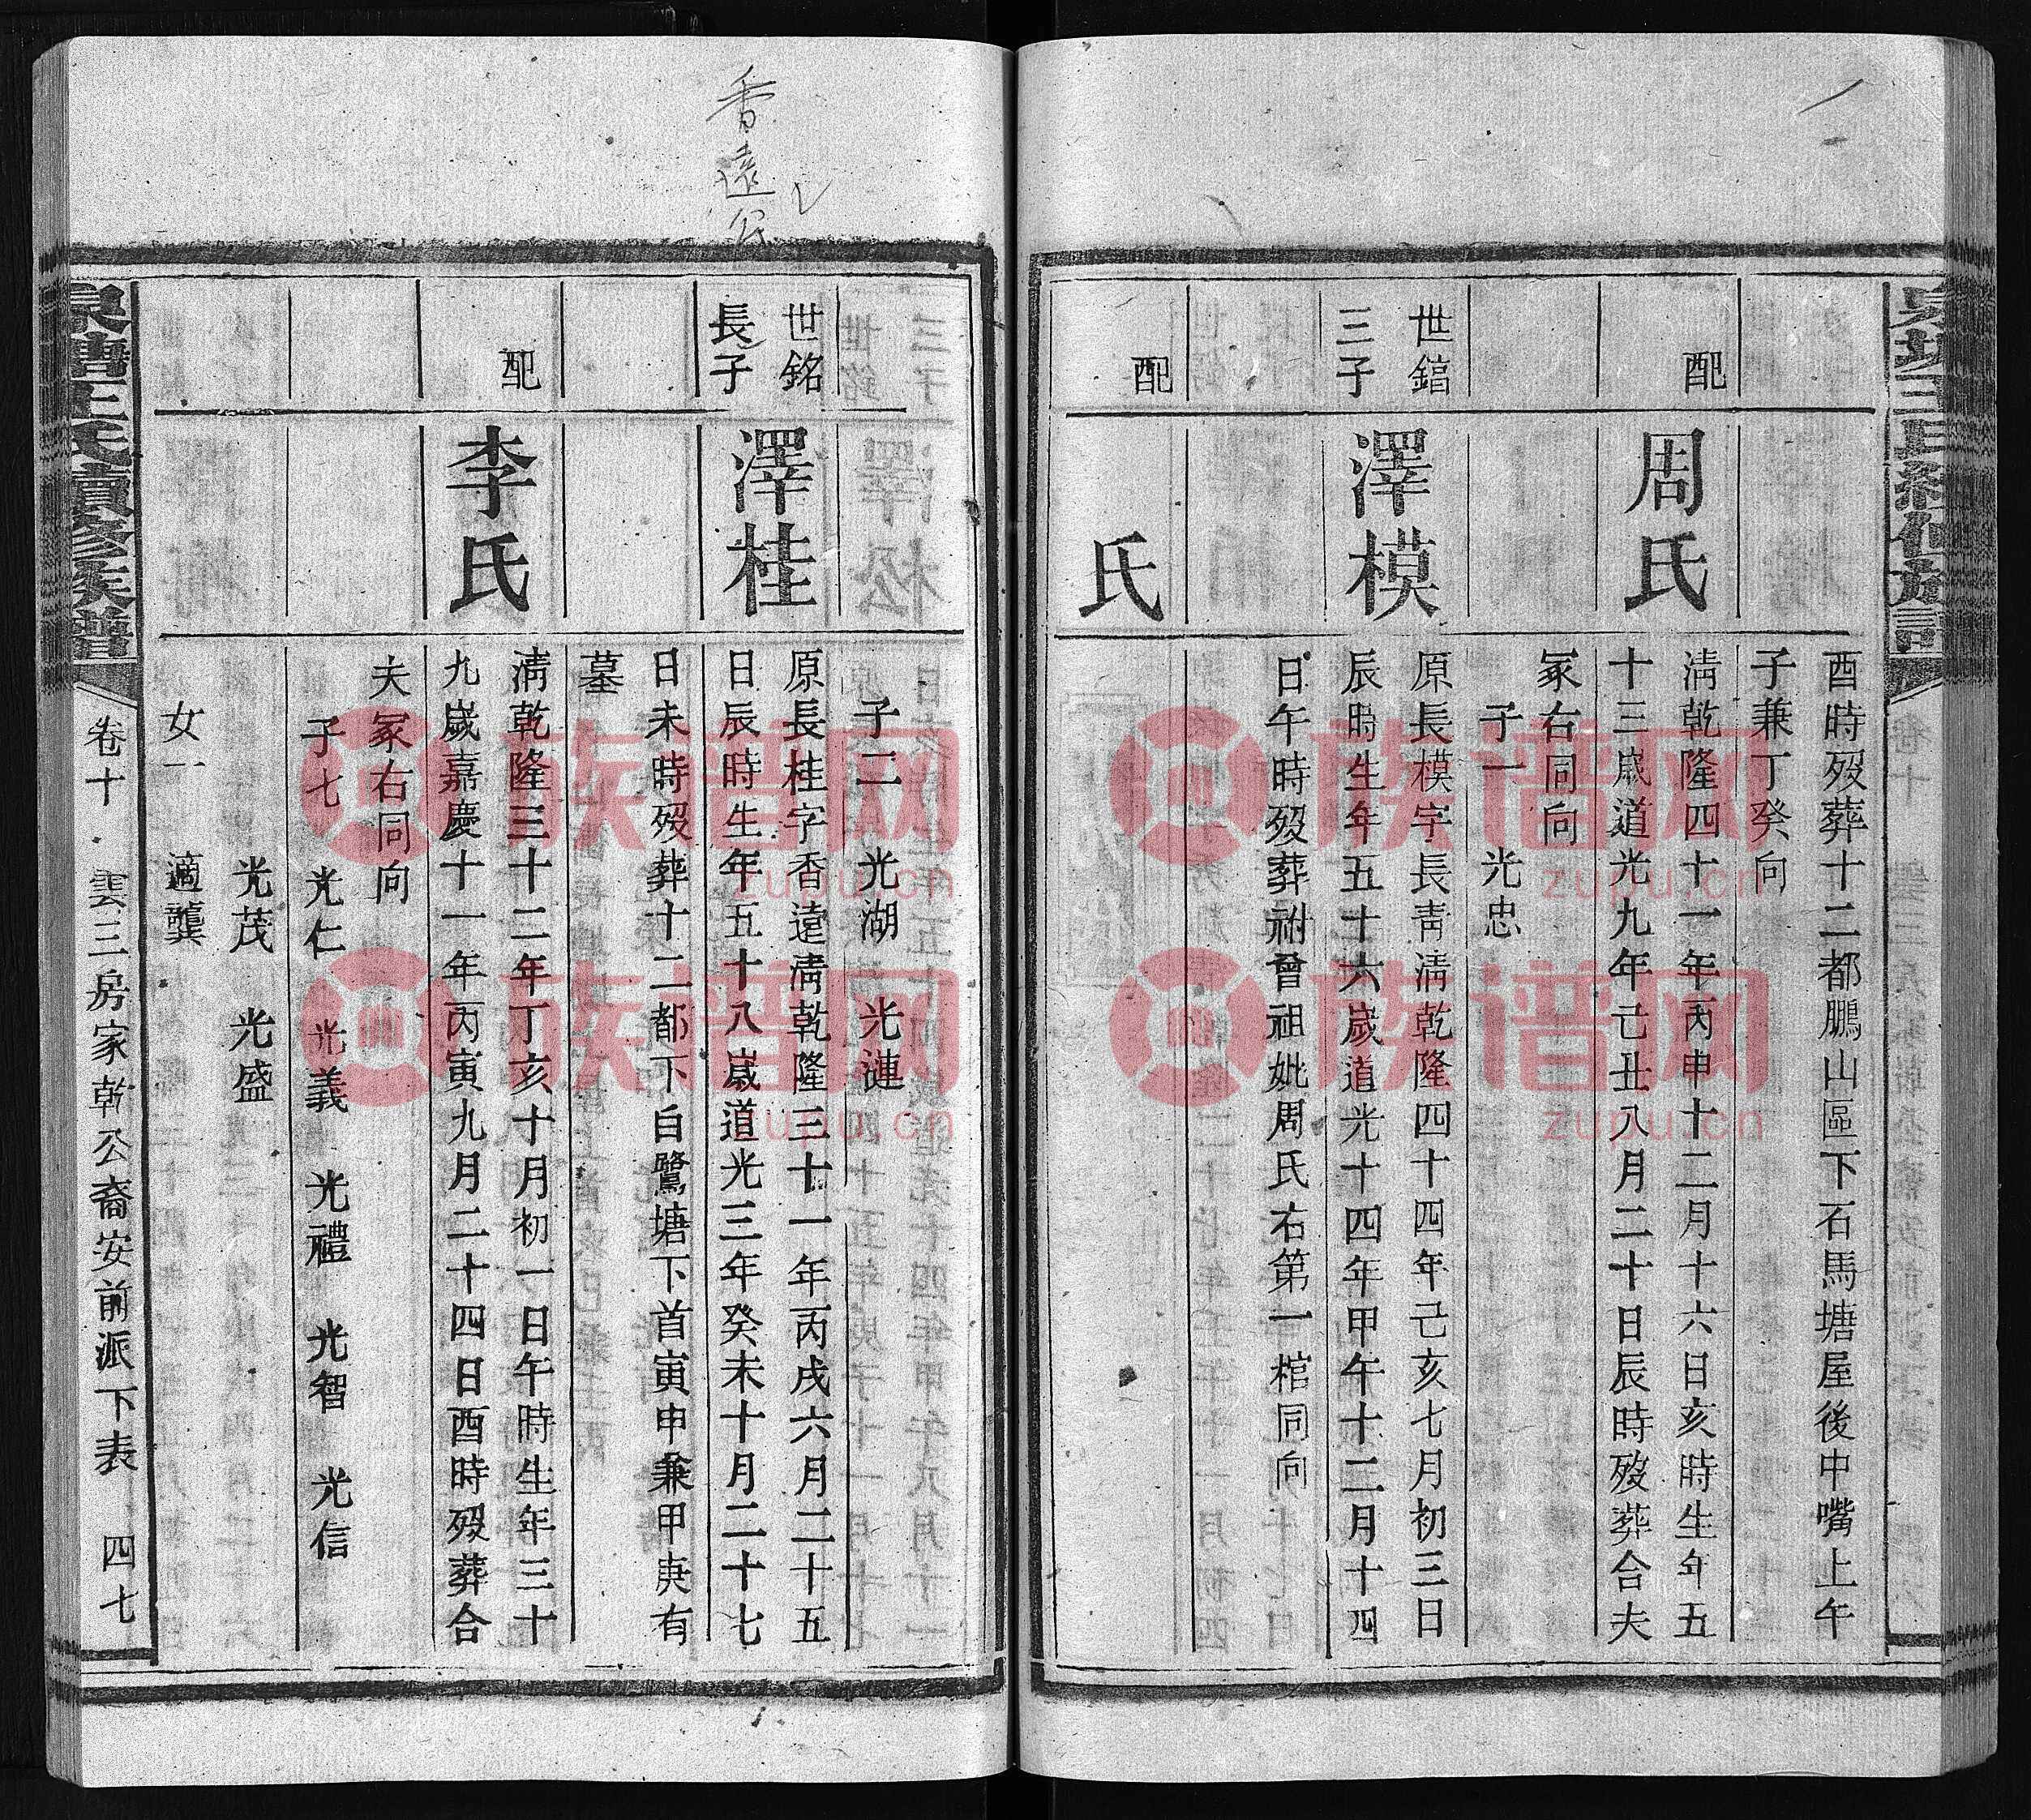 酉時歿葬十二都鵬山區下石馬塘屋後中嘴上午
子兼丁癸向
配
周氏
淸乾隆四十一年丙申十二月十六日亥時生年五
十三歲道光九年己丑八月二十日辰時歿葬合夫
冢右同向
子一 光忠
世鎬
三子
澤模
原長模字長靑淸乾隆四十四年己亥七月初三日
辰時生年五十六歲道光十四年甲午十二月十四
日午時歿葬祔曾祖妣周氏右第一棺同向
配
氏
子二 光湖 光漣
世銘
長子
澤桂
原長桂字香遠淸乾隆三十一年丙戌六月二十五
日辰時生年五十八歲道光三年癸未十月二十七
日未時歿葬十二都下白鷺塘下首寅申兼甲庚有
墓
配
李氏
淸乾隆三十二年丁亥十月初一日午時生年三十
九歲嘉慶十一年丙寅九月二十四日酉時歿葬合
夫冢右同向
子七 光仁 光義 光禮 光智 光信
光茂 光盛
女一 適龔
王氏續修族譜
卷十 雲三房家乾公裔安前派下表 四七
香遠公
族谱网
zupu.cn
族谱网
zupu.cn
族谱网
zupu.cn
族谱网
zupu.cn